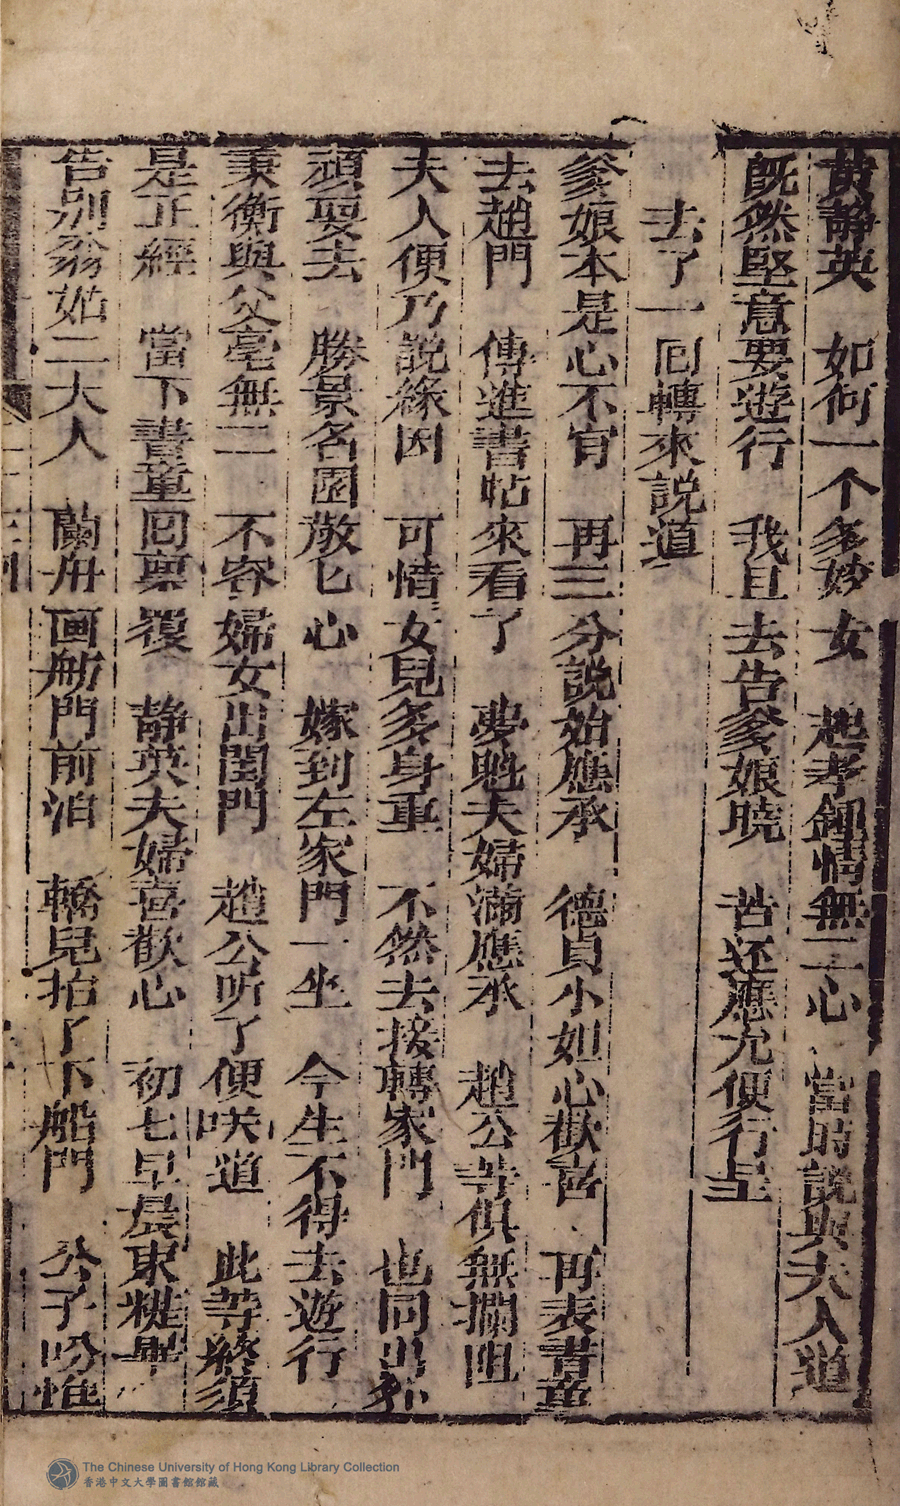 黄静英　如何一个多妙女　起孝鍾情無二心　當時説與夫人道
既然堅意要遊行　我且去告爹娘曉　若还應允便行呈
去了一囘轉來説道
爹娘本是心不肯　再三分説始應承　德貞小如心歡喜　再表書童
去趙門　傳進書帖來看了　夢魁夫婦滿應承　趙公等俱無攔阻
夫人便乃説緣因　可惜女兒多身重　不然去接轉家門　也同出外
頑耍去　勝景名園散匕心　嫁到左家門一坐　今生不得去遊行
秉衡與父毫無二　不容婦女出閨門　趙公听了便咲道　此等終須
是正經　當下書童囘稟覆　静英夫婦喜歡心　初七早晨東糚畢
告別翁姑二大人　蘭舟画舫門前泊　轎兒抬了下船門　公子吩
The Chinese University of Hong Kong Library Collection
香港中文大學圖書館館藏